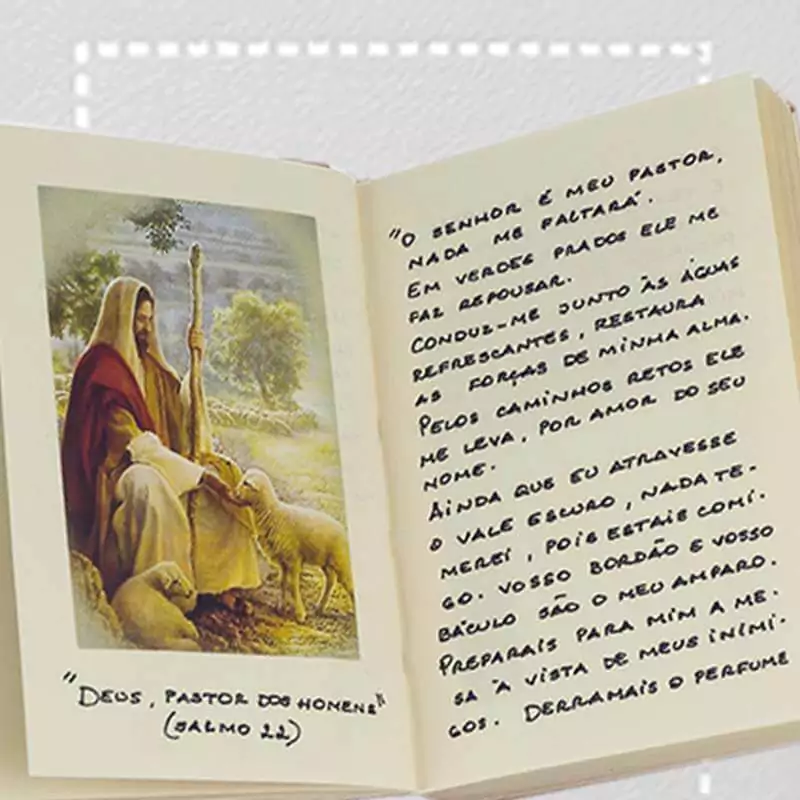 "DEUS, PASTOR DOS HOMENS"
(SALMO 22)
"O SENHOR É MEU PASTOR,
NADA ME FALTARÁ.
EM VERDES PRADOS ELE ME
FAZ REPOUSAR.
CONDUZ-ME JUNTO ÀS ÁGUAS
REFRESCANTES, RESTAURA
AS FORÇAS DE MINHA ALMA.
PELOS CAMINHOS RETOS ELE
ME LEVA, POR AMOR DO SEU
NOME.
AINDA QUE EU ATRAVESSE
O VALE ESCURO, NADA TE-
MEREI, POIS ESTAIS COMI-
GO. VOSSO BORDÃO E VOSSO
BÁCULO SÃO O MEU AMPARO.
PREPARAIS PARA MIM A ME-
SA À VISTA DE MEUS INIMI-
GOS. DERRAMAIS O PERFUME